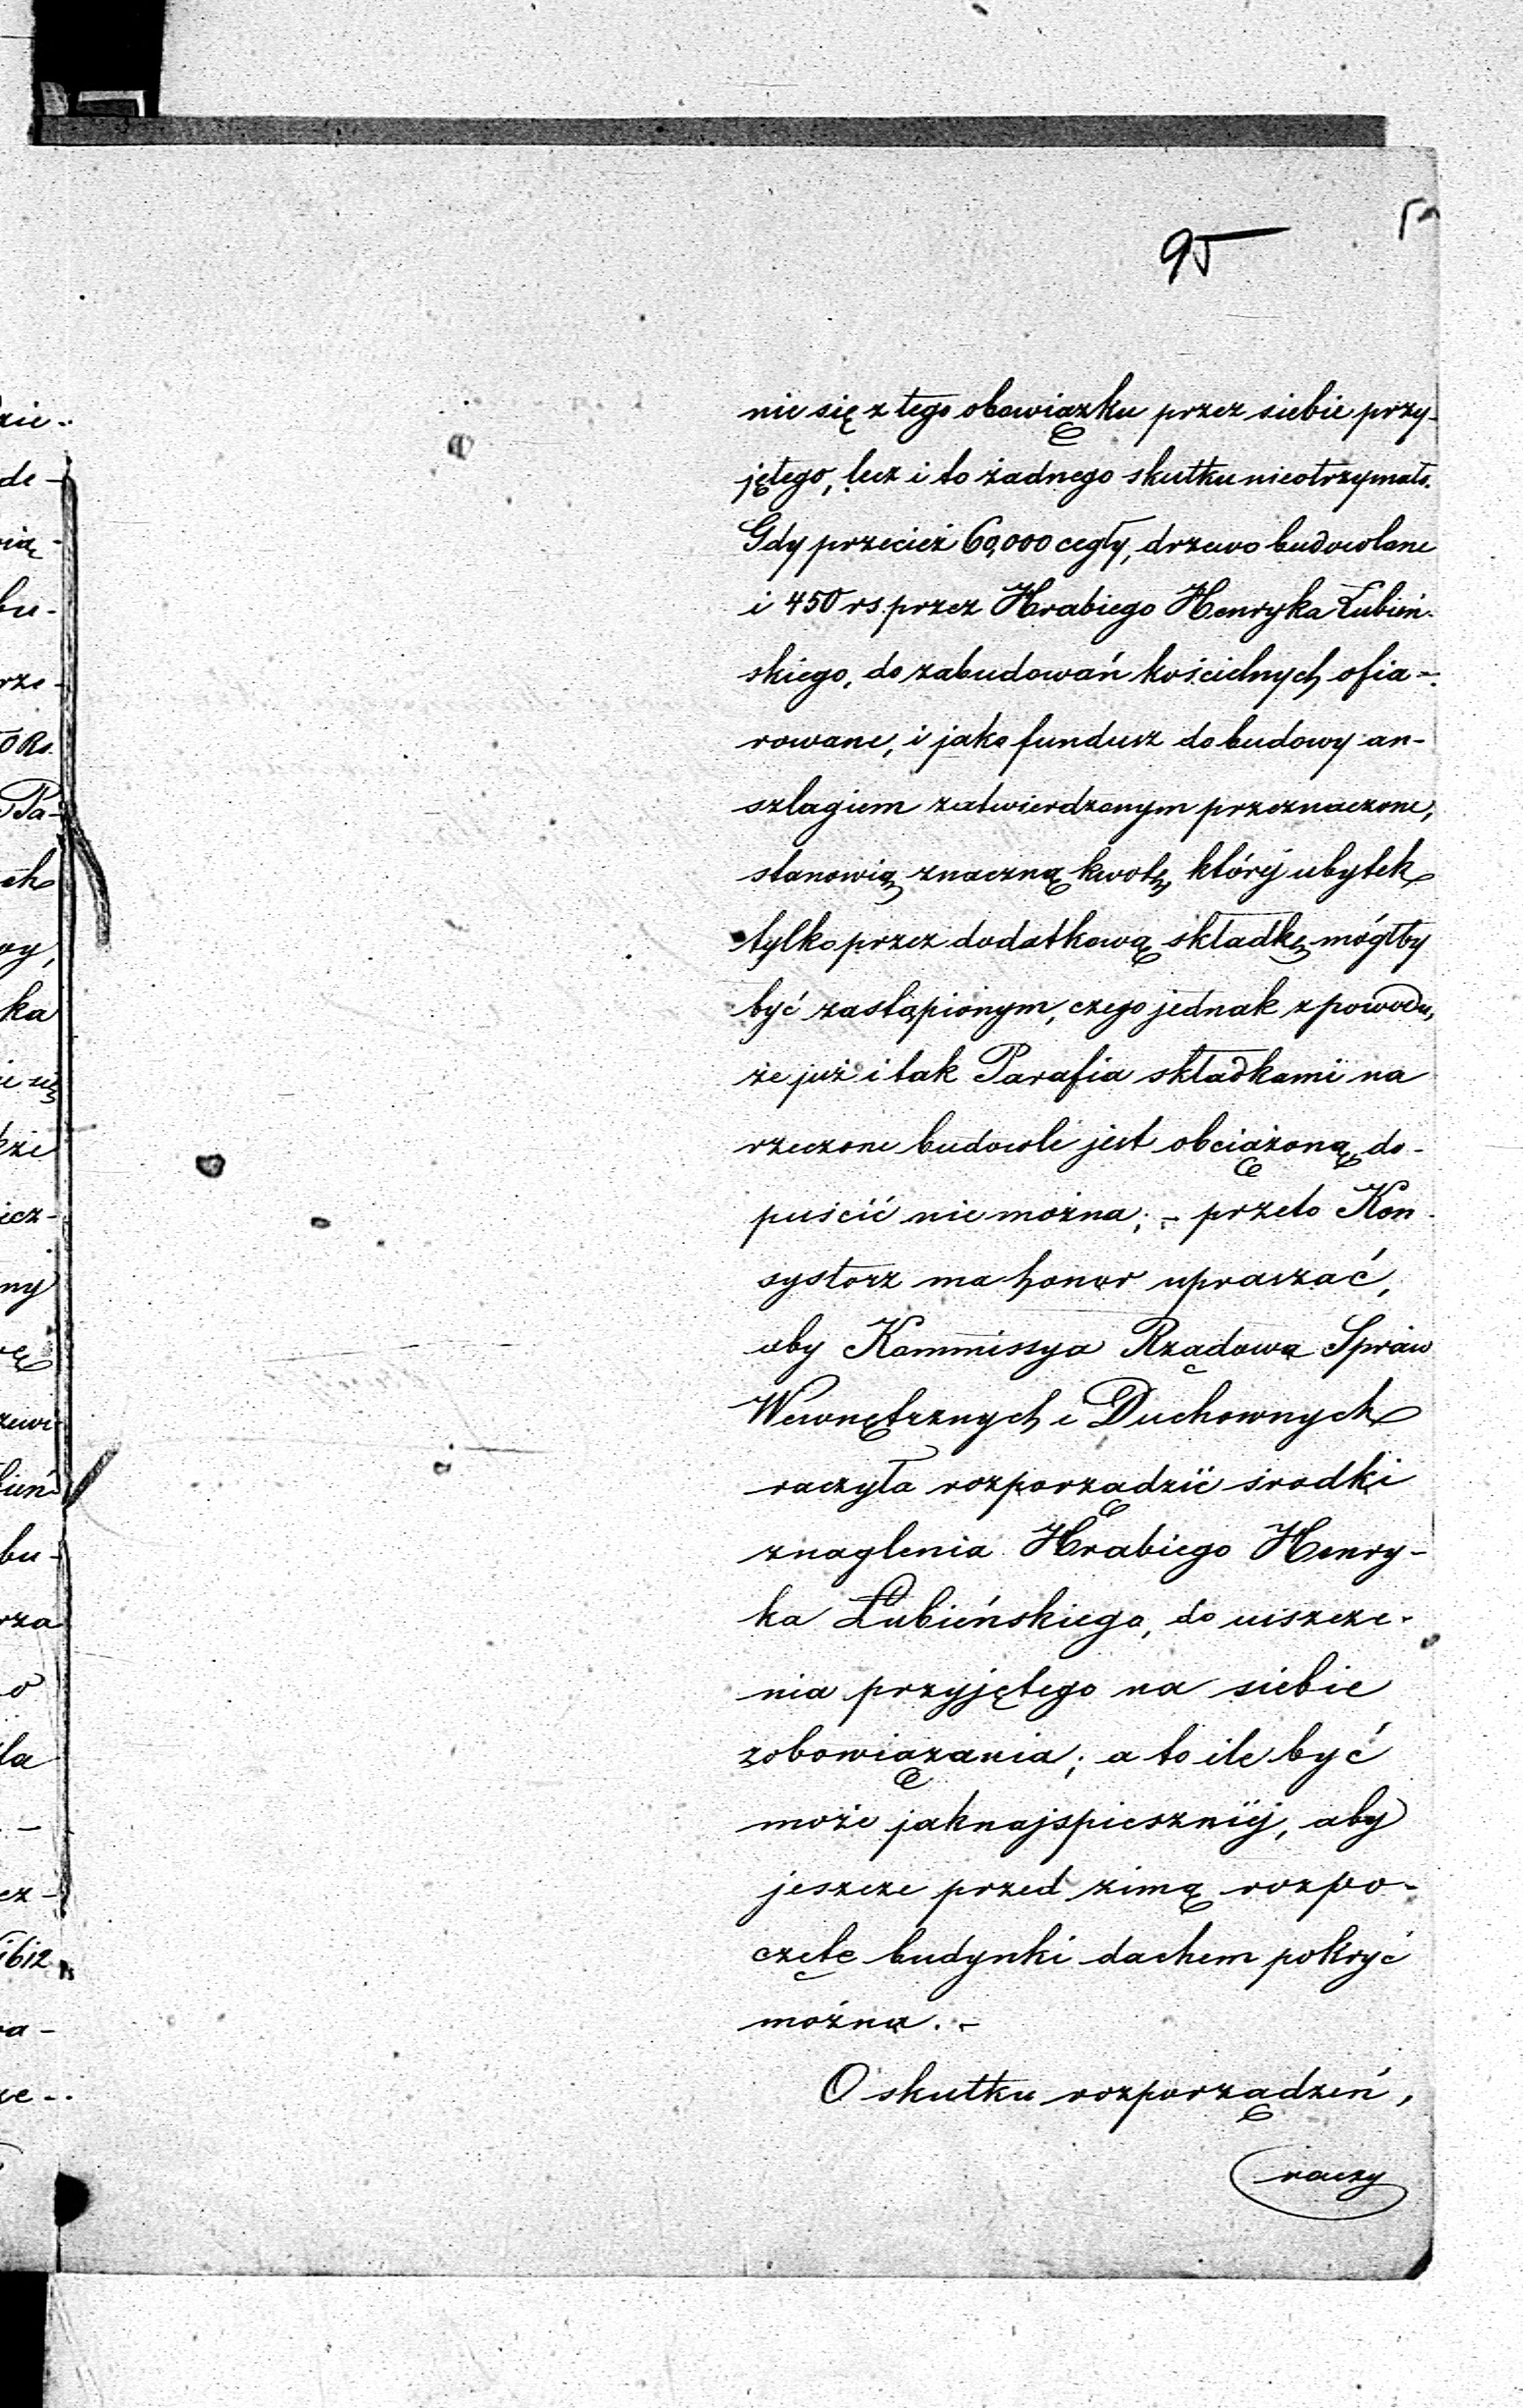 95
nie się z tego obowiązku przez siebie przy-
jętego, lecz i to żadnego skutku nieotrzymało.
Gdy przecież 60,000 cegły, drzewo budowlane
i 450 rs. przez Hrabiego Henryka Łubień-
skiego, do zabudowań kościelnych ofia-
rowane, i jako fundusz do budowy an-
szlagiem zatwierdzonym przeznaczone,
stanowią znaczną kwotę, któréj ubytek
tylko przez dodatkową składkę mógłby
być zastąpionym, czego jednak z powodu,
że już i tak Parafia składkami na
rzeczone budowle jest obciążoną, do-
puścić nie można; - przeto Kon-
systorz ma honor upraszać,
aby Kommissya Rządowa Spraw
Wewnętrznych i Duchownych
raczyła rozporządzić środki
znaglenia Hrabiego Henry-
ka Łubieńskiego, do uiszcze-
nia przyjętego na siebie
zobowiązania; a to ile być
może jaknajspieszniéj, aby
jeszcze przed zimą rozpo-
częte budynki dachem pokryć
można. -
O skutku rozporządzeń,
raczy